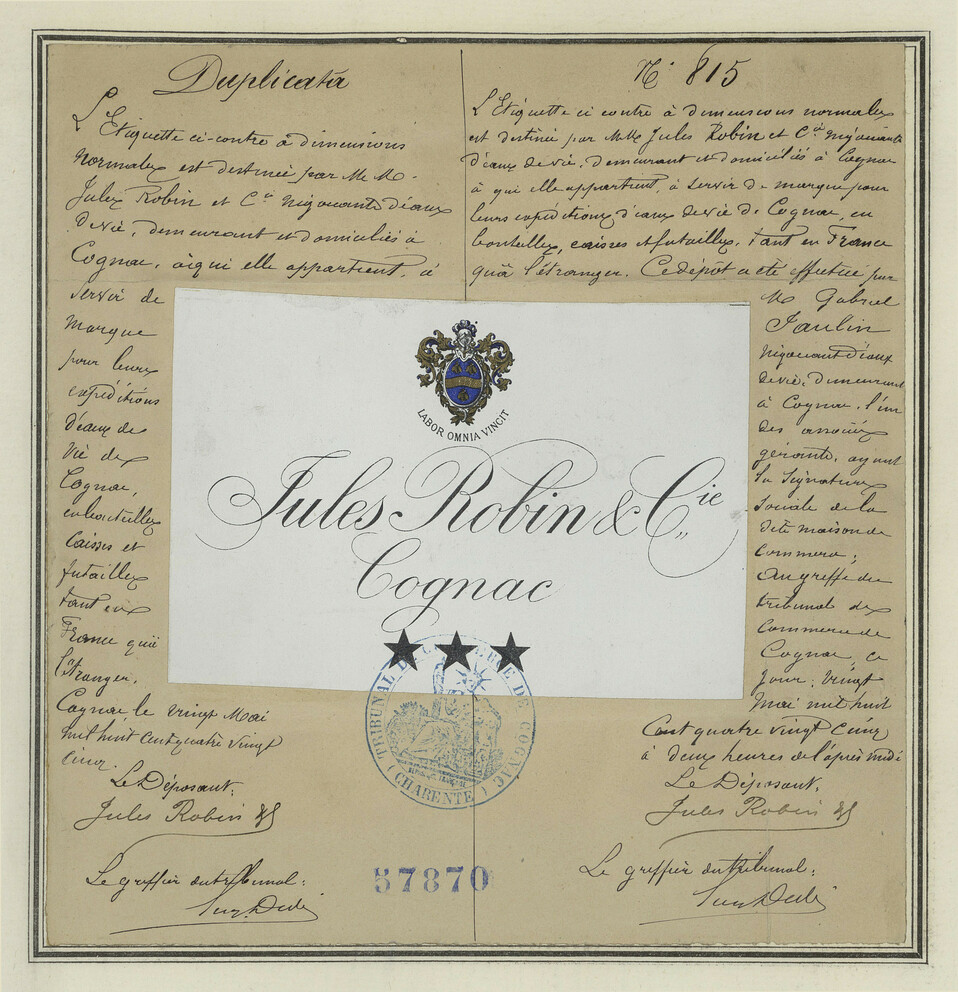 Duplicata
L'Etiquette ci-contre à dimensions
normales est destinée par M.M.
Jules Robin et Cie négociants d'eaux
de vie, demeurant et domiciliés à
Cognac, à qui elle appartient, à
servir de
marque
pour leurs
expéditions
d'eaux de
vie de
Cognac,
en bouteilles
caisses et
futailles
tant en
France qu'à
l'étranger.
Cognac le vingt Mai
mil huit cent quatre vingt
cinq.
Le Déposant;
Jules Robin &
Le greffier du tribunal:
N° 815
L'Etiquette ci contre à dimensions normales
est destinée par M.M. Jules Robin et Cie négociants
d'eaux de vie, demeurant et domiciliés à Cognac
à qui elle appartient, à servir de marque pour
leurs expéditions d'eaux de vie de Cognac, en
bouteilles, caisses et futailles, tant en France
qu'à l'étranger. Ce dépôt a été effectué par
M Gabriel
Paulin
négociant d'eaux
de vie, demeurant
à Cognac, l'un
des associés
gérants, ayant
la signature
sociale de la
dite maison de
commerce;
au greffe du
tribunal de
commerce de
Cognac, ce
jour, vingt
Mai mil huit
cent quatre vingt cinq
à deux heures de l'après midi
Le Déposant,
Jules Robin &
Le greffier du tribunal:
LABOR OMNIA VINCIT
Jules Robin & Cie
Cognac
TRIBUNAL DE COMMERCE DE COGNAC
(CHARENTE)
57870